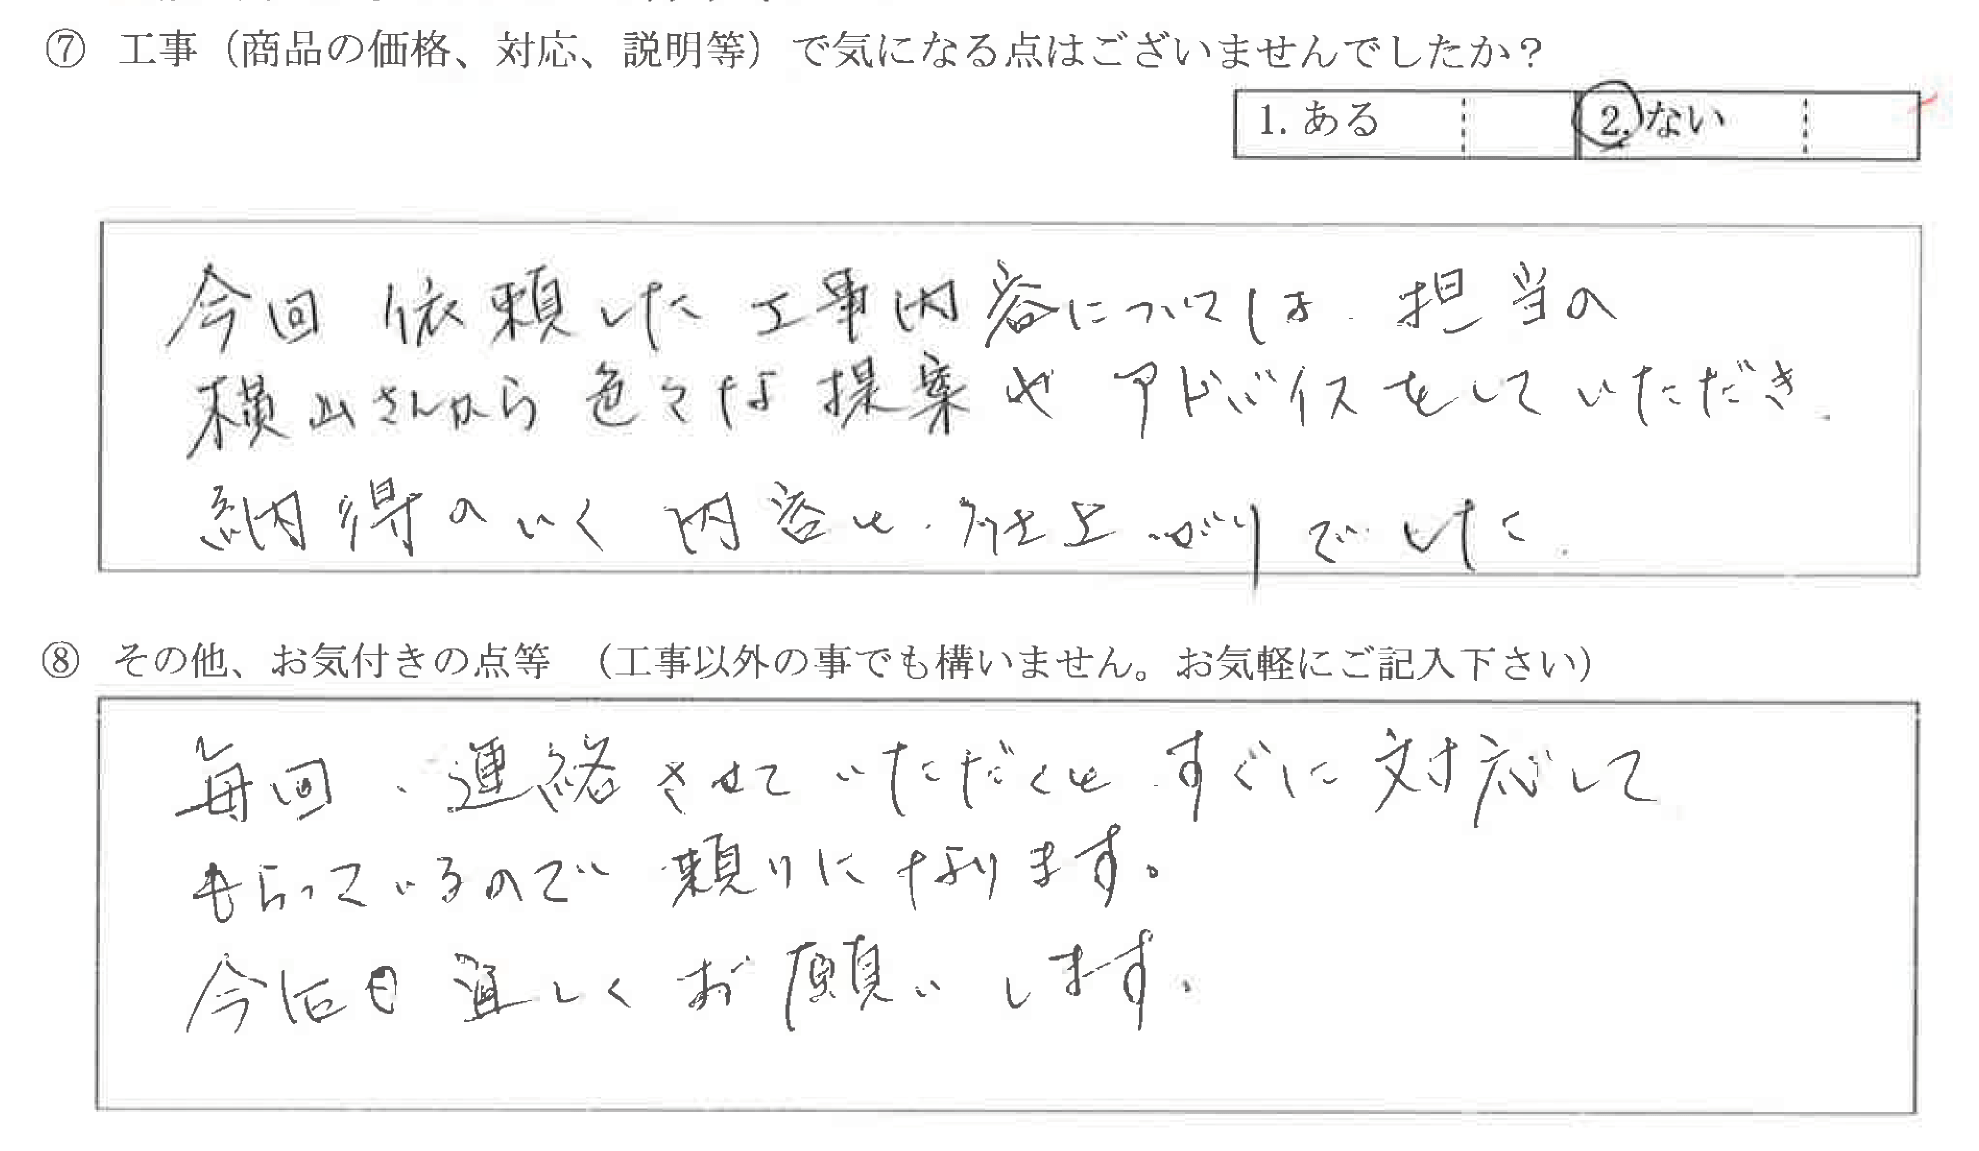 ⑦ 工事（商品の価格、対応、説明等）で気になる点はございませんでしたか？
1. ある 2. ない
今回 依頼した 工事内容については、担当の
横山さんから色々な提案や アドバイスをしていただき、
納得のいく 内容と、仕上がりでした。
⑧ その他、お気付きの点等 （工事以外の事でも構いません。お気軽にご記入下さい）
毎回、連絡させていただくと すぐに 対応して
もらっているので 頼りになります。
今后も 宜しく お願いします。